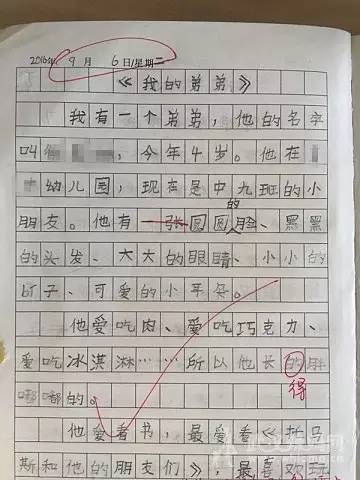 2016年 9月 6日/星期二
《我的弟弟》
我有一个弟弟，他的名字
叫，今年4岁。他在
幼儿园，现在是中九班的小
朋友。他有一张圆圆的脸、黑黑
的头发、大大的眼睛、小小的
子、可爱的小耳朵。
他爱吃肉、爱吃巧克力、
爱吃冰淇淋……所以他长的胖
得
嘟嘟的。
他爱看书，最爱看《托马
斯和他的朋友们》，最喜欢玩